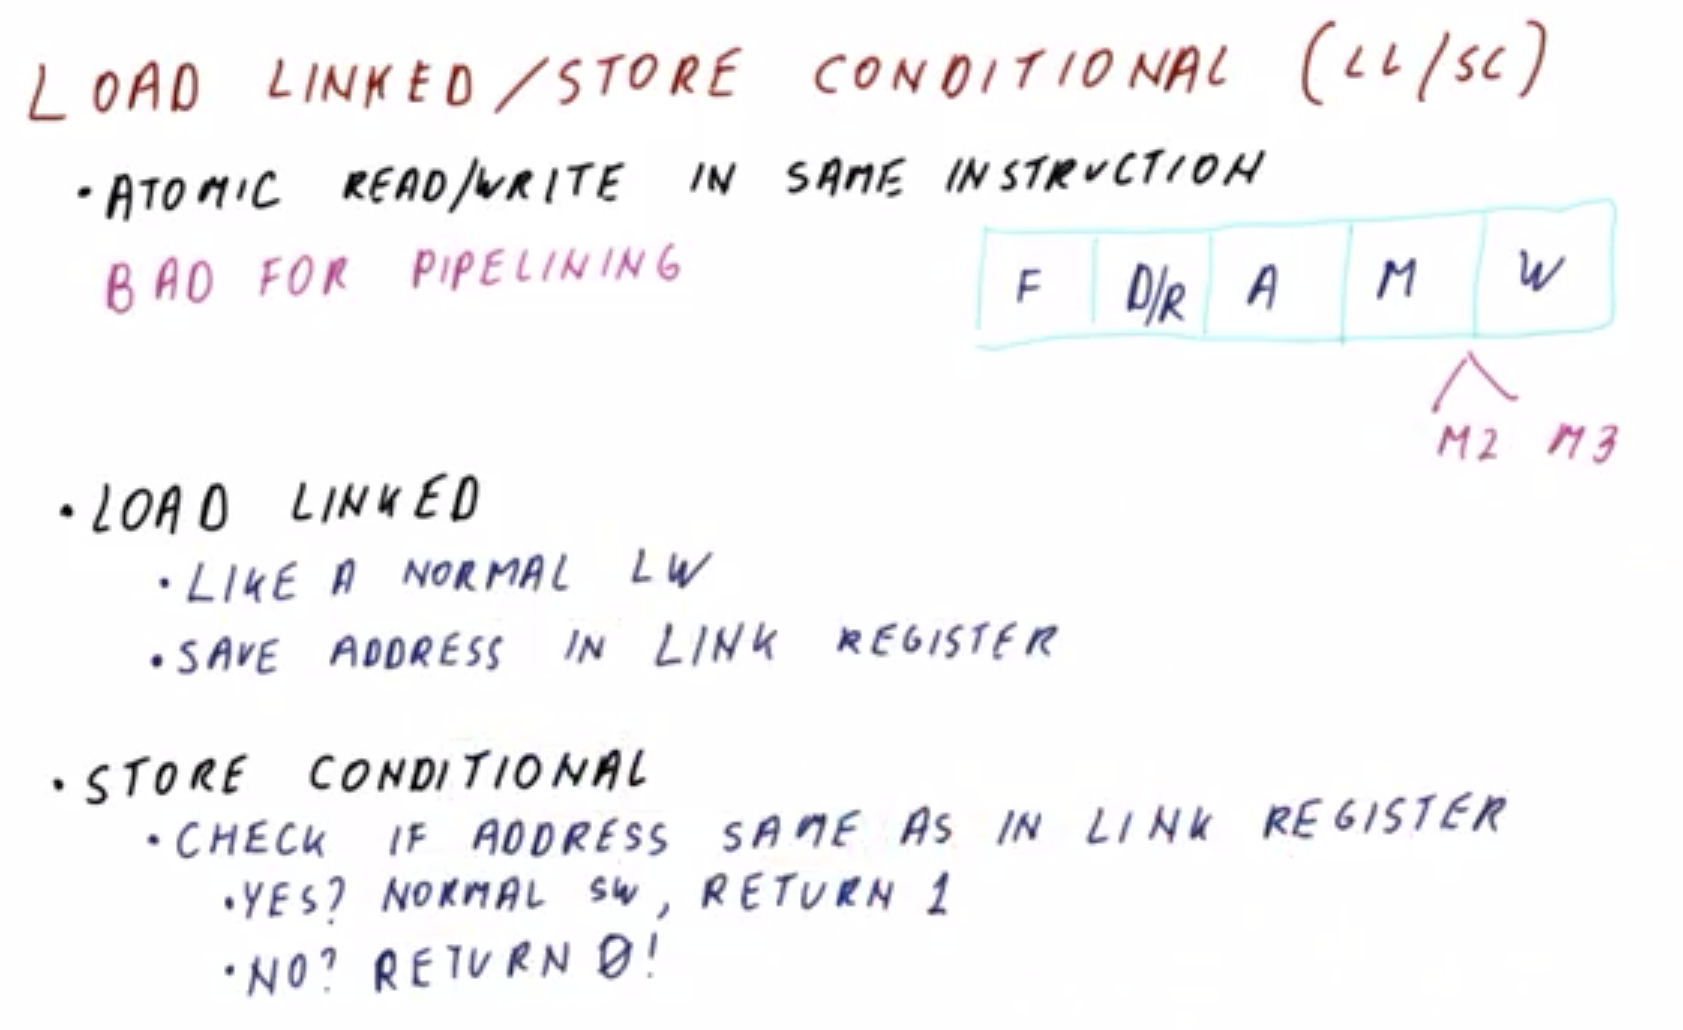 LOAD LINKED/STORE CONDITIONAL (LL/SC)
• ATOMIC READ/WRITE IN SAME INSTRUCTION
BAD FOR PIPELINING
F D/R A M W
M2 M3
• LOAD LINKED
• LIKE A NORMAL LW
• SAVE ADDRESS IN LINK REGISTER
• STORE CONDITIONAL
• CHECK IF ADDRESS SAME AS IN LINK REGISTER
• YES? NORMAL SW, RETURN 1
• NO? RETURN 0!